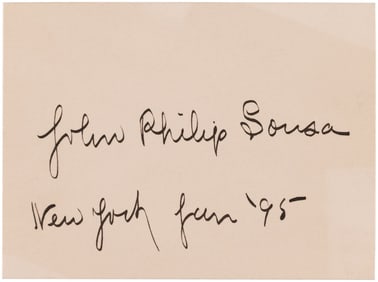 John Philip Sousa
New York Jan '95